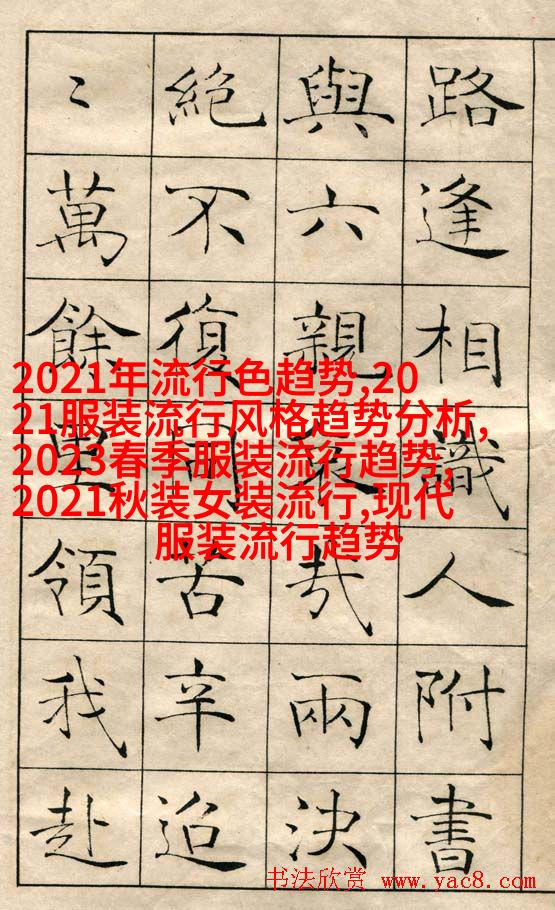 路逢相識人附書
與六親哀哉兩決
絕不復同苦辛迢
〻萬餘里領我赴
2021年流行色趋势,20
21服装流行风格趋势分析,
2023春季服装流行趋势,
2021秋装女装流行,现代
服装流行趋势
书法欣赏 www.yac8.com